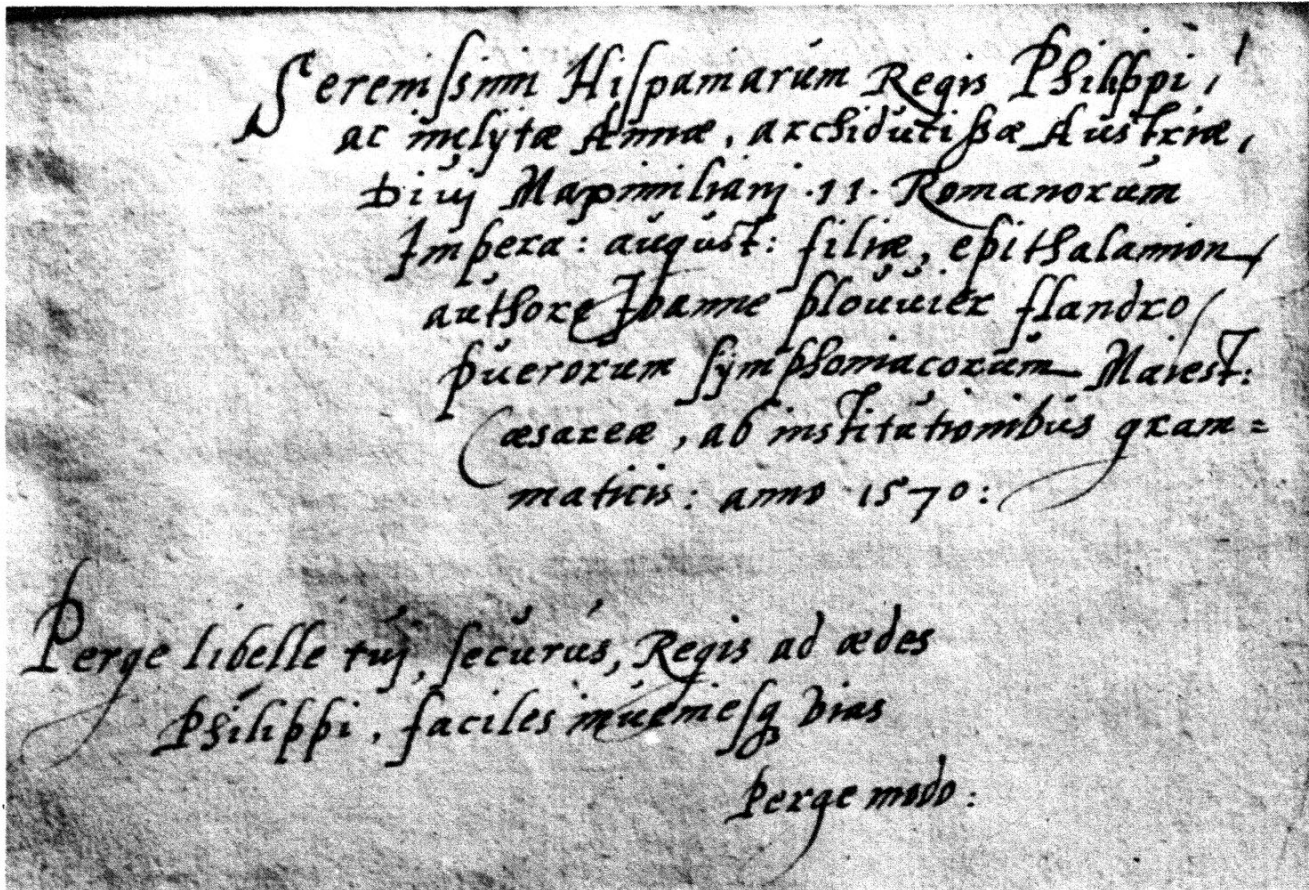 Serenissimi Hispaniarum Regis Philippi,
ac inclÿtæ Annæ, archiducissæ Austriæ,
Diuj Maximilianj ·11· Romanorum
Impera: august: filiæ, epithalamion
authore Joanne plouuier flandro
puerorum sÿmphoniacorum Maiest:
Cæsareæ, ab institutionibus gram=
maticis: anno 1570:
Perge libelle tuj, securus, Regis ad ædes
Philippi, faciles inueniesq3 vias
Perge modo: